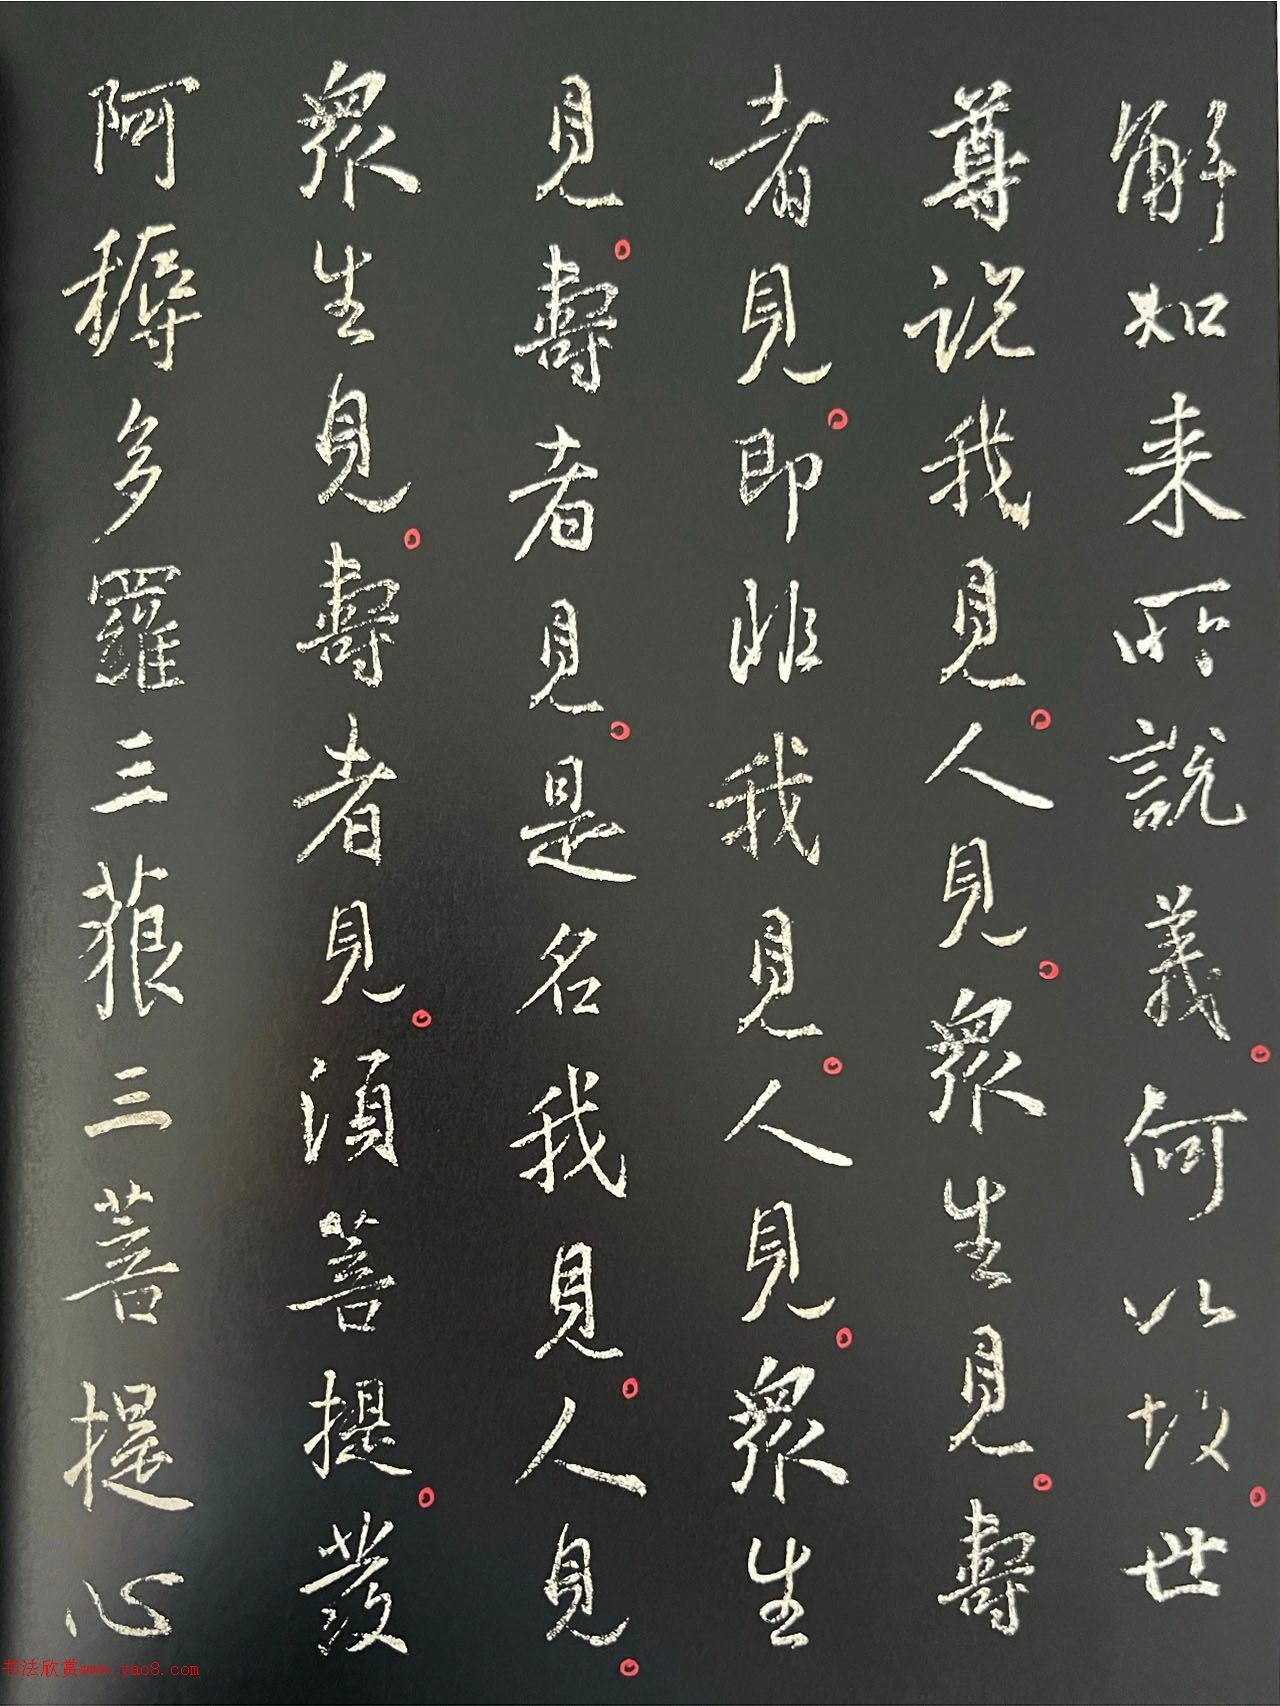 解如来所說義。何以故。世
尊説我見。人見。眾生見。壽
者見。即非我見。人見。眾生
見。壽者見。是名我見。人見。
眾生見。壽者見。須菩提。發
阿耨多羅三藐三菩提心
书法欣赏www.yac8.com